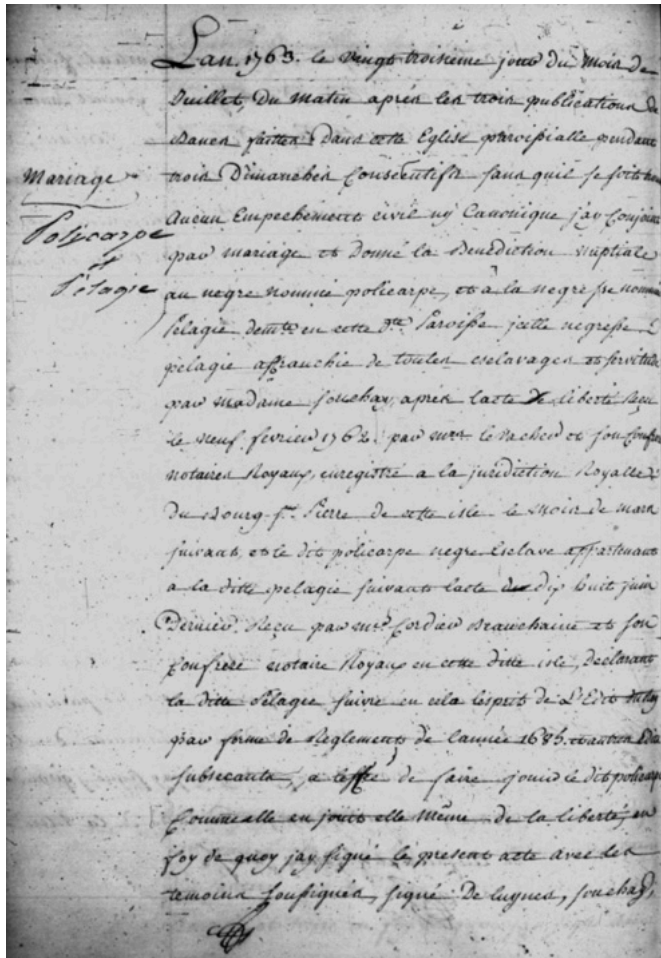 Lan 1763. le vingt troisieme jour du mois de
Juillet, du matin apres les trois publications de
Bancs faittes dans cette Eglise paroissialle pendant
trois Dimanches Consecutifs sans quil se soit
Mariage
Policarpe
et
Pélagie
Aucun Empechement civil ny Canonique jay Conjoint
par mariage et donné la Benediction nuptiale
au negre nommé policarpe, et à la negresse nommée
Pélagie demte en cette dte Paroisse jcelle negresse
pelagie affranchie de toutes esclavages et servitudes
par madame Souchay, apres lacte de liberté Reçu
le neuf fevrier 1762. par mrs le vacher et son Confrere
notaires Royaux, enregistré a la juridiction Royalle
du Bourg St Pierre de cette isle le mois de mars
suivant, et le dit policarpe negre Esclave appartenant
a la ditte pelagie suivant lacte du dix huit juin
Dernier. Reçu par mrs Cordier Beauchaine et son
Confrere notaire Royaux en cette ditte isle, declarant
la ditte Pélagie suivre en cela lesprit de L'Edit du Roy
par forme de Reglement de lannée 1685. et autres Edits
subsecants, a leffet de faire jouir le dit policarpe
Comme elle en jouit elle même de la liberté, en
foy de quoy jay signé le present acte avec les
temoins soussignés, signé De lugnes, souchay,